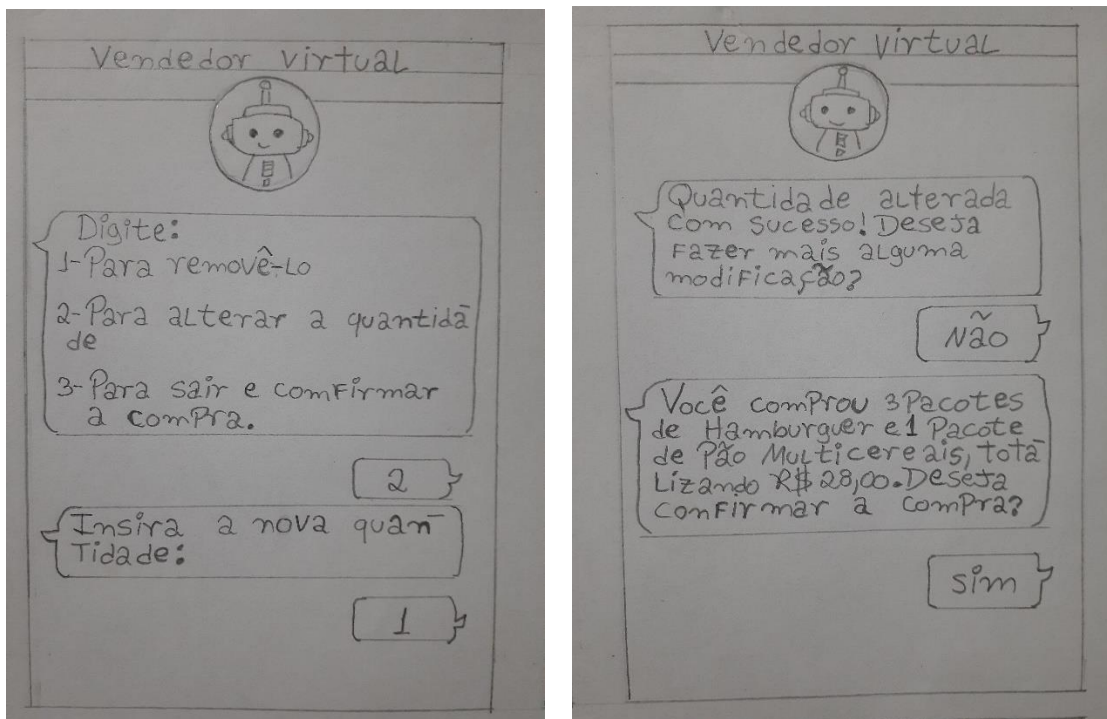 Vendedor Virtual
Digite:
1-Para removê-lo
2-Para alterar a quantida
de
3-Para sair e comfirmar
a compra.
2
Insira a nova quan-
Tidade:
1
Vendedor Virtual
Quantidade alterada
com sucesso! Deseja
Fazer mais alguma
modificação?
Não
Você comprou 3 Pacotes
de Hamburguer e 1 Pacote
de Pão Multicereais, tota
Lizando R$ 28,00. Deseja
confirmar a compra?
sim